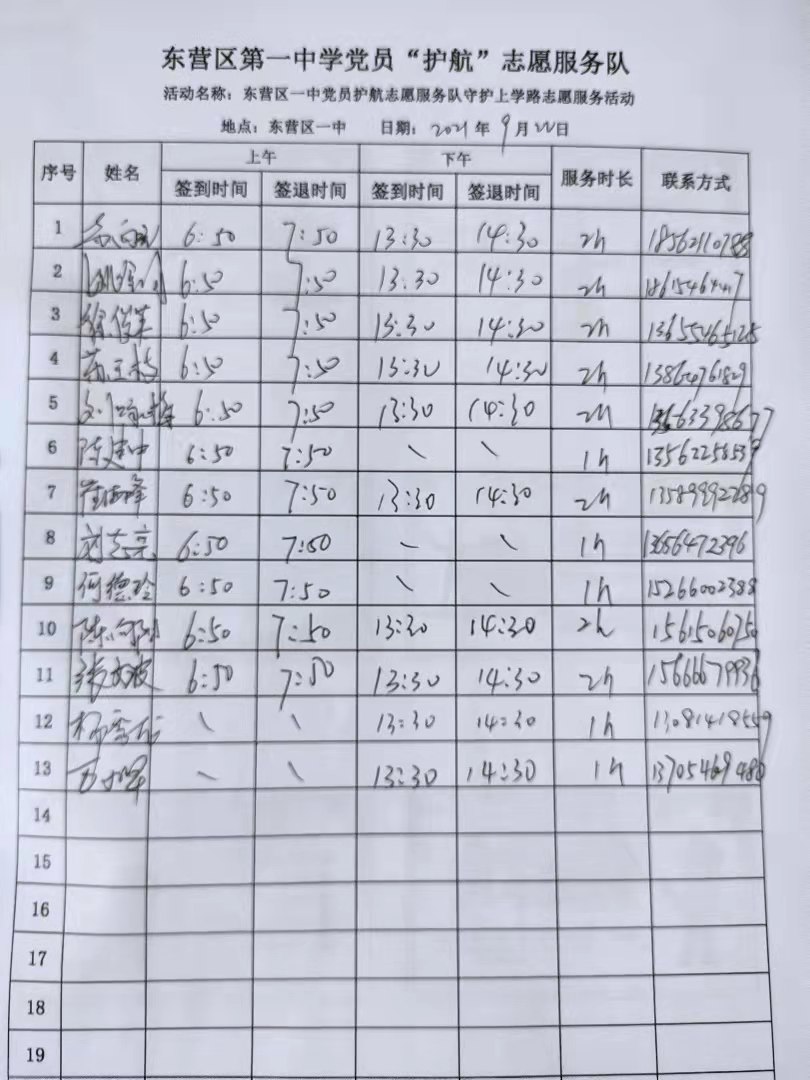 东营区第一中学党员“护航”志愿服务队
活动名称：东营区一中党员护航志愿服务队守护上学路志愿服务活动
地点：东营区一中 日期：2021年9月22日
序号 姓名 上午 下午 服务时长 联系方式
签到时间 签退时间 签到时间 签退时间
1 6:50 7:50 13:30 14:30 2h 18562110788
2 6:50 7:50 13:30 14:30 2h
3 徐俊英 6:50 7:50 13:30 14:30 2h 13655465128
4 6:50 7:50 13:30 14:30 2h
5 6:50 7:50 13:30 14:30 2h
6 陈建中 6:50 7:50 \ \ 1h
7 6:50 7:50 13:30 14:30 2h 13589992289
8 刘志亮 6:50 7:50 — \ 1h
9 何德玲 6:50 7:50 \ \ 1h 15266002388
10 6:50 7:50 13:30 14:30 2h
11 张文波 6:50 7:50 13:30 14:30 2h 15666679936
12 \ \ 13:30 14:30 1h 13081418559
13 \ \ 13:30 14:30 1h 13705469480
14
15
16
17
18
19